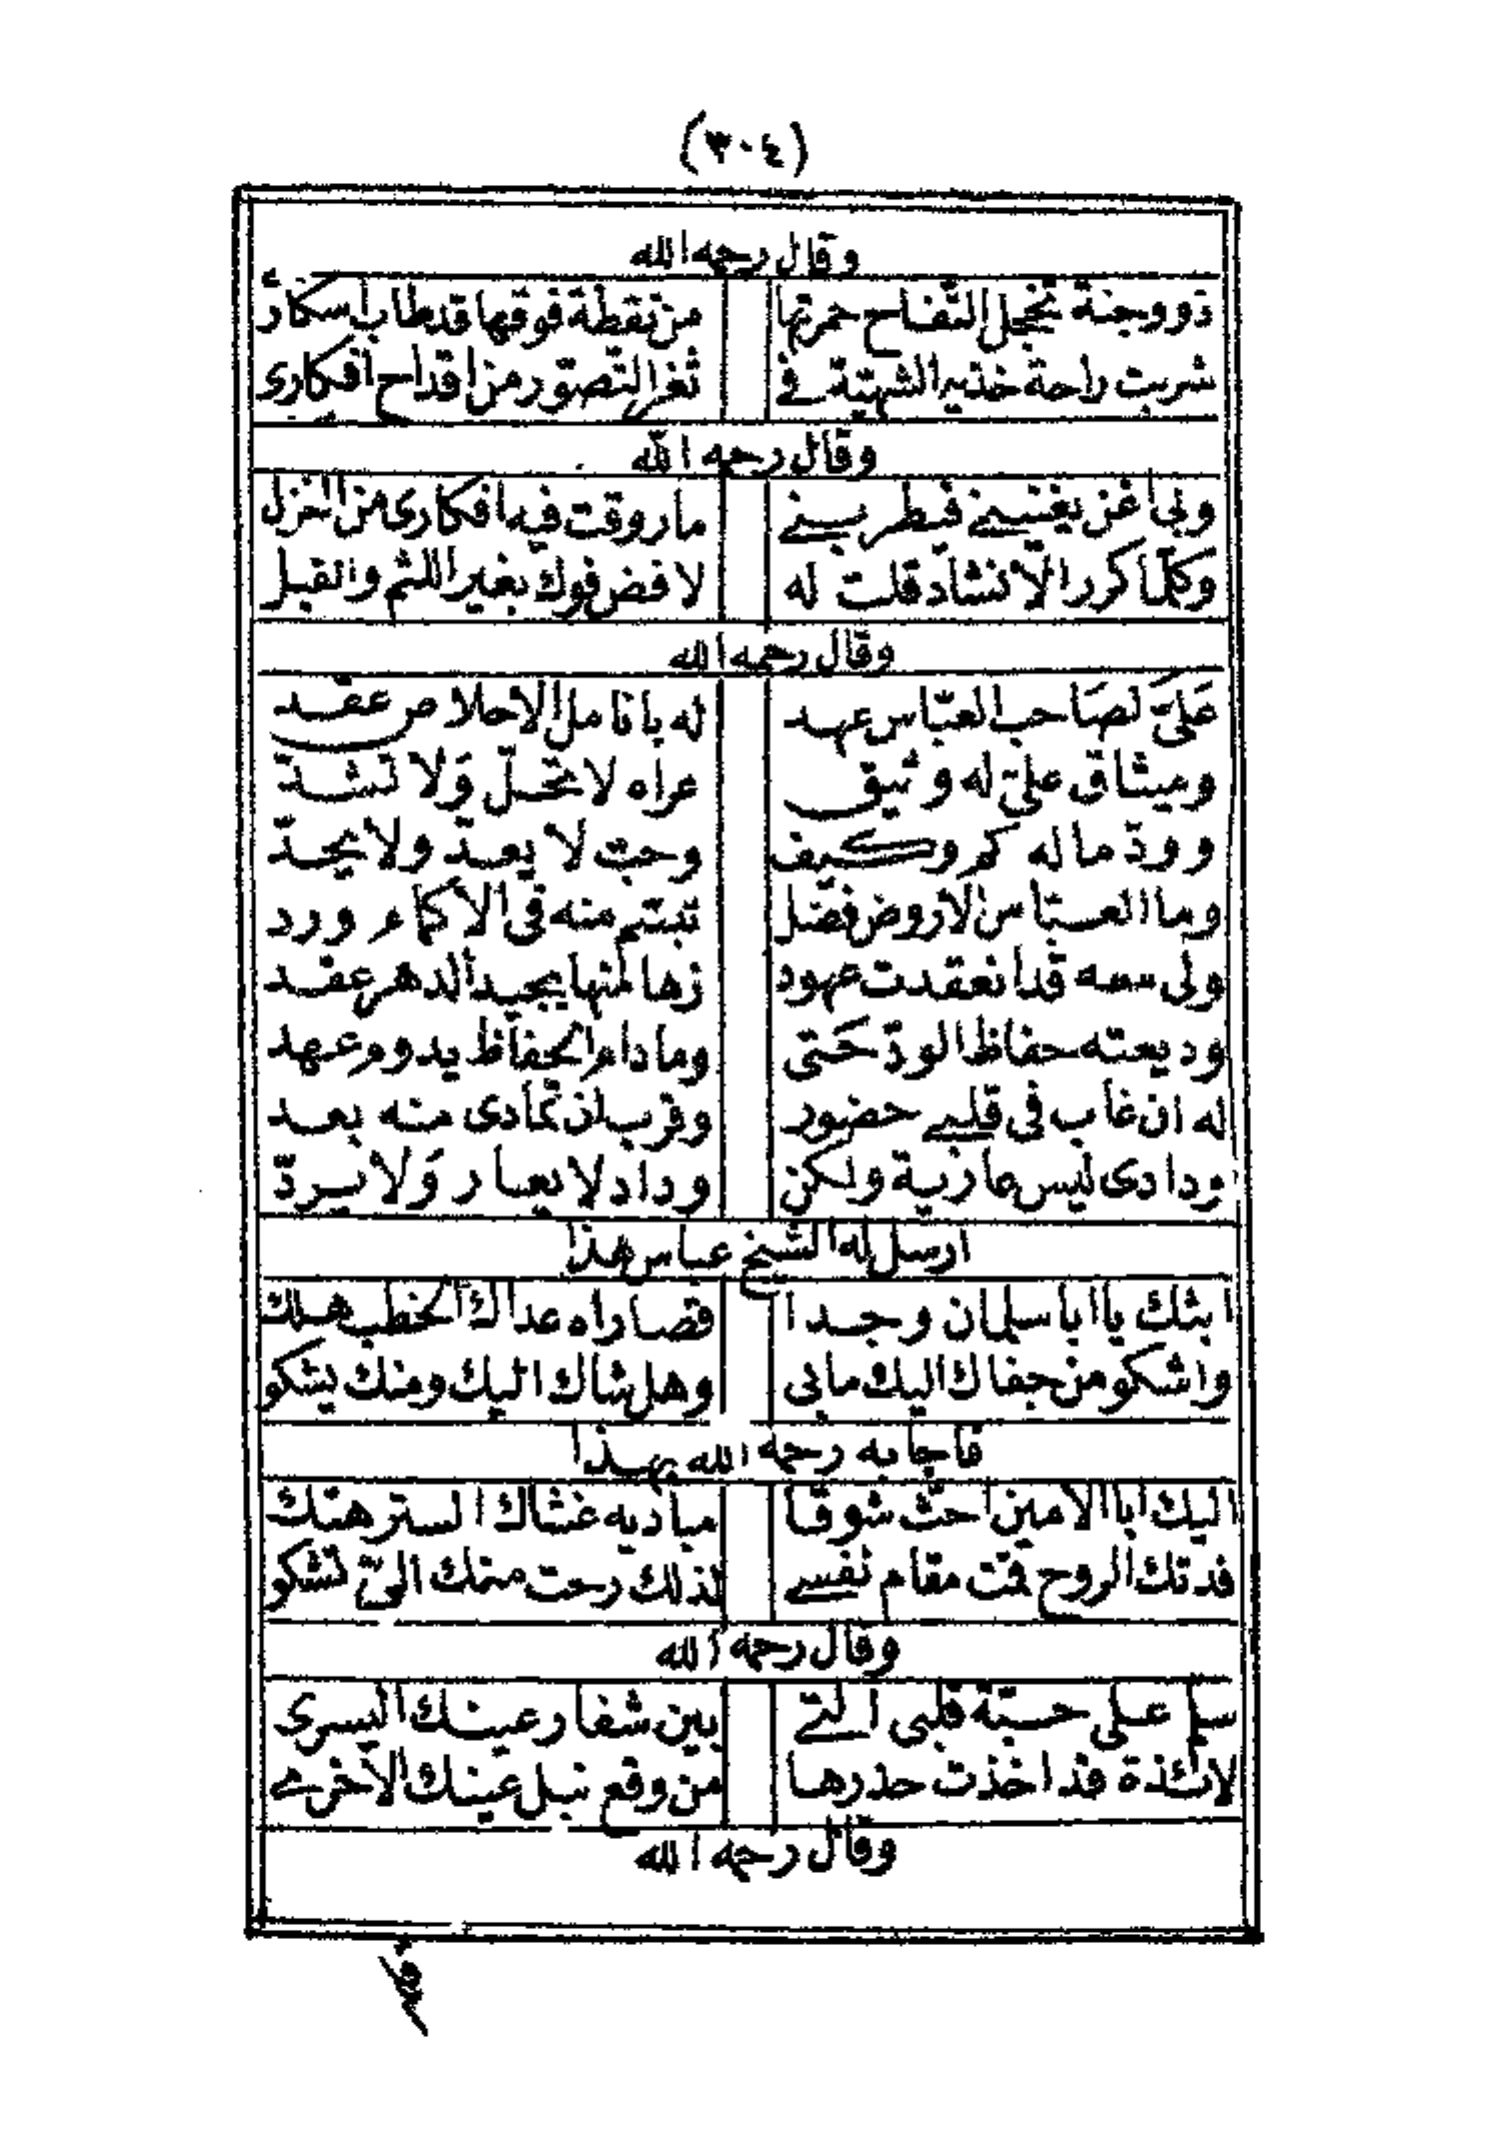 (٣٠٤)
وقال رحمه الله
ذو وجنة تخجل التفاح حمرتها من نقطة فوقها قد طاب اسكارى
شربت راحة خديه الشهية في ثغر التصوّر من اقداح افكارى
وقال رحمه الله
وبي اغن يغنيني فيطربني ما روقت فيه افكارى من الغزل
وكلّما كرر الانشاد قلت له لا فض فوك بغير اللثم والقبل
وقال رحمه الله
عَليَّ لصَاحب العبّاس عهد له بانامل الاخلاص عقد
وميثاق عليّ له وثيق عراه لا تحلّ وَلا تشدّ
وودّ ما له كم وكيف وحبّ لا يعدّ ولا يحدّ
وما العباس الا روض فضل تبسّم منه في الاكمام ورد
ولي معه قد انعقدت عهود زها منها بجيد الدهر عقد
وديعته حفاظ الودّ حَتى وما دام الحفاظ يدوم عهد
له ان غاب في قلبي حضور وقرب ان تمادى منه بعد
ودادى ليس عارية ولكن وداد لا يعار وَلا يردّ
ارسل له الشيخ عباس هذا
ابثك يا ابا سلمان وجدا قصاراه عداك الخطب هلك
واشكو من جفاك اليك مابي وهل شاك اليك ومنك يشكو
فاجابه رحمه الله بهذا
اليك ابا الامين احثّ شوقا مباديه غشاك الستر هتك
فدتك الروح قمت مقام نفسي لذلك رحت منك اليّ تشكو
وقال رحمه الله
سلم على حبّة قلبي التي بين شفار عينك اليسرى
لائذة قد اخذت حذرها من وقع نبل عينك الاخرى
وقال رحمه الله